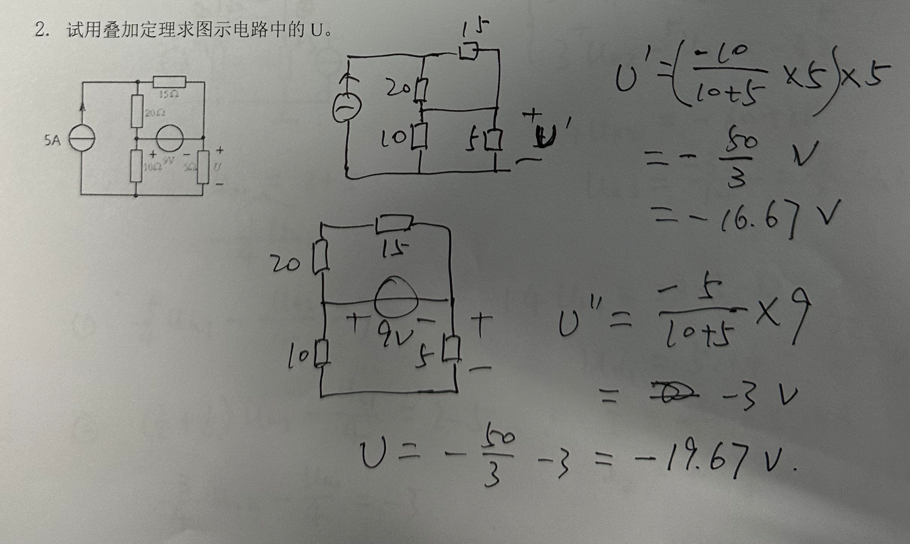 2. 试用叠加定理求图示电路中的 U。
15Ω
20Ω
5A
+ 9V -
10Ω
5Ω
+
U
-
15
20
10
5
+
U'
-
U' = (-10/(10+5) ×5)×5
= - 50/3 V
= -16.67 V
20
15
+ 9V -
10
5
+
-
U'' = -5/(10+5) × 9
= -3 V
U = - 50/3 -3 = -19.67 V.